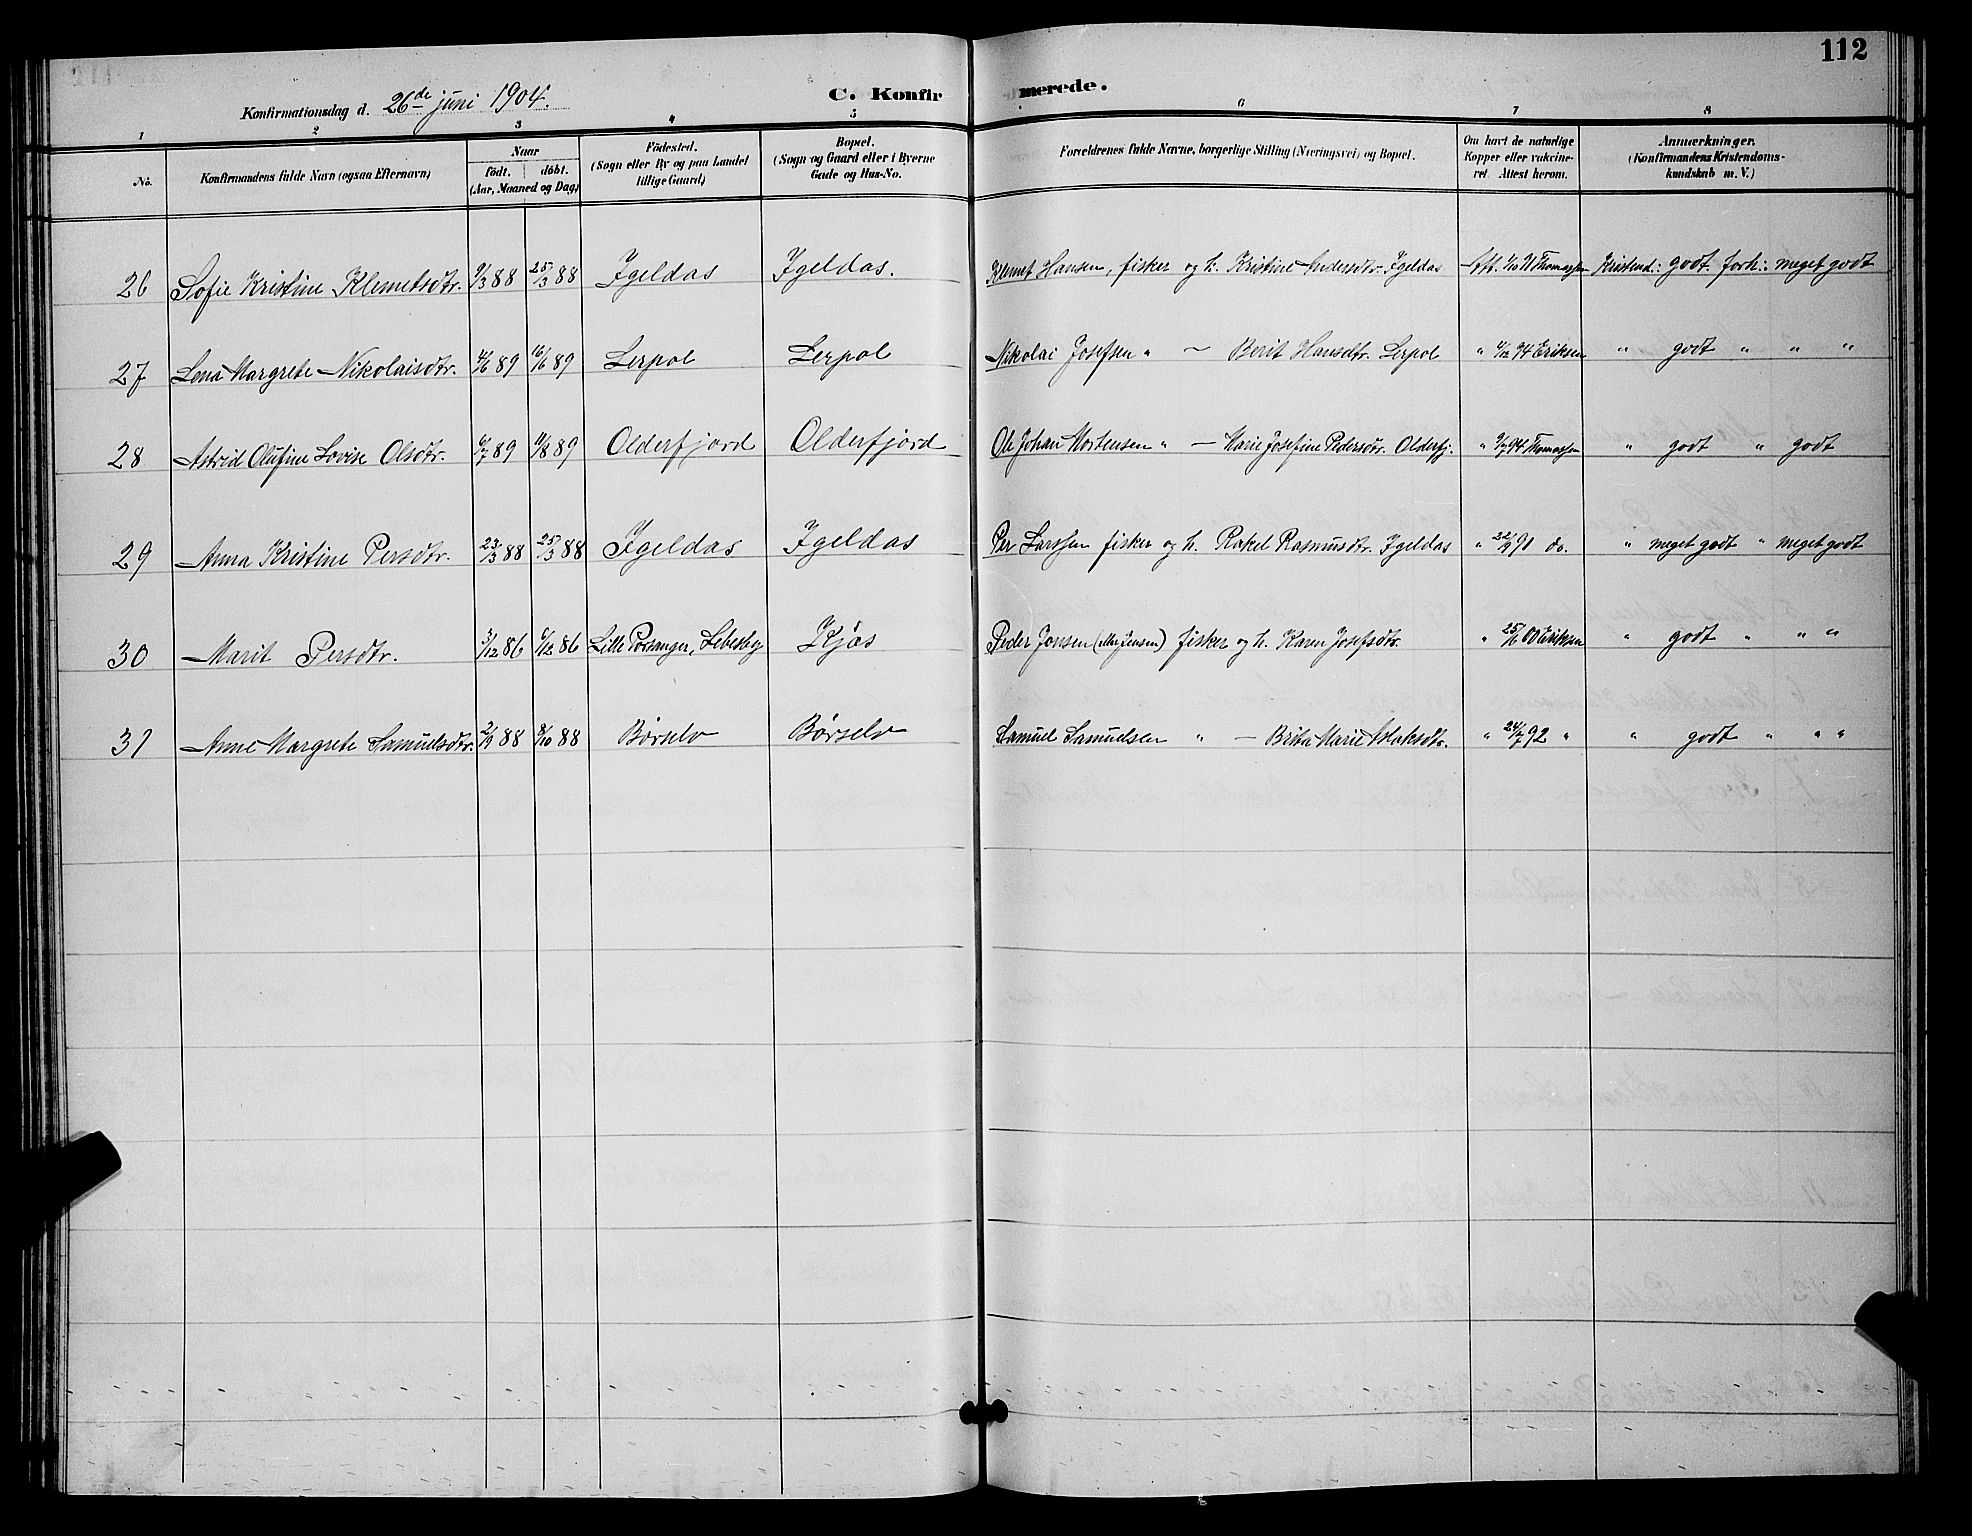 112
Konfirmationsdag d. 26de juni 1904.
C. Konfirmerede.
1 2 3 4 5 6 7 8
No.
Konfirmandens fulde Navn (ogsaa Efternavn)
Naar
født. døbt.
(Aar, Maaned og Dag)
Fødested.
(Sogn eller By og paa Landet
tillige Gaard)
Bopæl.
(Sogn og Gaard eller i Byerne
Gade og Hus-No.
Forældrenes fulde Navne, borgerlige Stilling (Næringsvei) og Bopæl.
Om havt de naturlige
Kopper eller vakcine-
ret Attest herom.
Anmærkninger.
(Konfirmandens Kristendoms-
kundskab m. V.)
26 Sofie Kristine Klemetsdtr. 9/3 88 25/3 88 Igeldas Igeldas. Klemet Hansen, fisker og h. Kristine Andersdtr. Igeldas Thomassen Kristend.: godt forh.: meget godt
27 Lena Margrete Nikolaisdtr. 4/6 89 16/6 89 Lerpol Lerpol Nikolai Josefsen " — Berit Hansdtr. Lerpol " 94 Eriksen " godt " " "
28 Astrid Olufine Lovise Olsdtr. 6/7 89 11/8 89 Olderfjord Olderfjord Ole Johan Mortensen " — Marie Josefine Pedersdtr. Olderfj. " 94 Thomassen " godt " godt
29 Anna Kristine Persdtr. 23/3 88 25/3 88 Igeldas Igeldas Per Larssen fisker og h. Rakel Rasmusdtr. Igeldas " do. " meget godt " meget godt
30 Marit Persdtr. 3/12 86 6/12 86 Lille Porsanger, Lebesby Kjæs Peder Jonsen fisker og h. Karen Josefsdtr. " 25/6 00 Eriksen " godt " " "
31 Anne Margrete Samuelsdtr. 2/9 88 8/10 88 Børselv Børselv Samuel Samuelsen " — Brita Marie Aslaksdtr. " 24/7 92 " " godt " " "